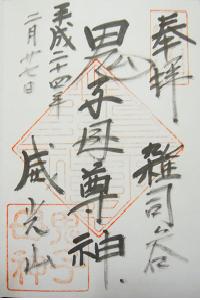 奉拝
雑司谷
鬼子母尊神
威光山
平成二十四年
二月廿七日